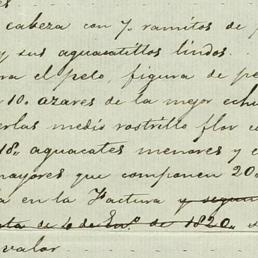 es
cabeza con 7. ramitos de p
y sus aguacatillos lindos.
ra el pelo, figura de pe
10. azares de la mejor echu
erlas medio rostrillo flor co
18. aguacates menores y c
mayores que componen 20
a en la Factura y segun
ta de 4 de En.º de 1820.
valor